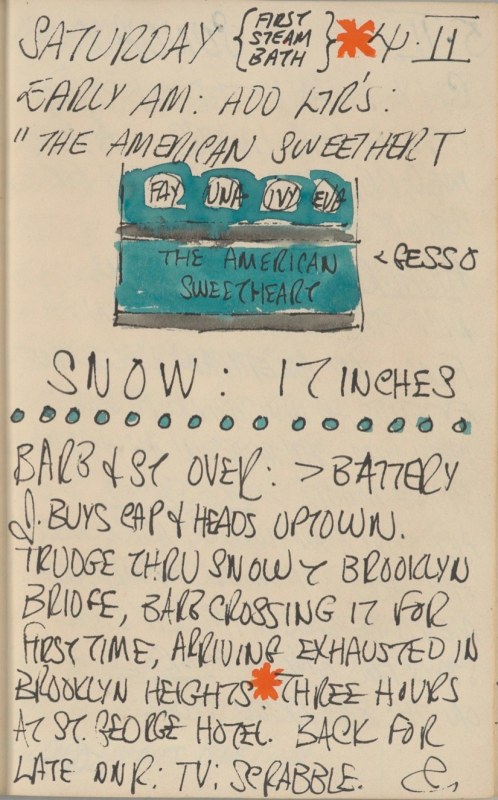 SATURDAY { FIRST STEAM BATH } 4. II
EARLY AM: ADD LTR'S:
" THE AMERICAN SWEETHERT
FAY UNA IVY EVA
THE AMERICAN
SWEETHEART
< GESSO
SNOW: 17 INCHES
BARB & ST OVER: > BATTERY
J. BUYS CAP & HEADS UPTOWN.
TRUDGE THRU SNOWY BROOKLYN
BRIDGE, BARB CROSSING IT FOR
FIRST TIME, ARRIVING EXHAUSTED IN
BROOKLYN HEIGHTS. THREE HOURS
AT ST. GEORGE HOTEL. BACK FOR
LATE DNR: TV: SCRABBLE.